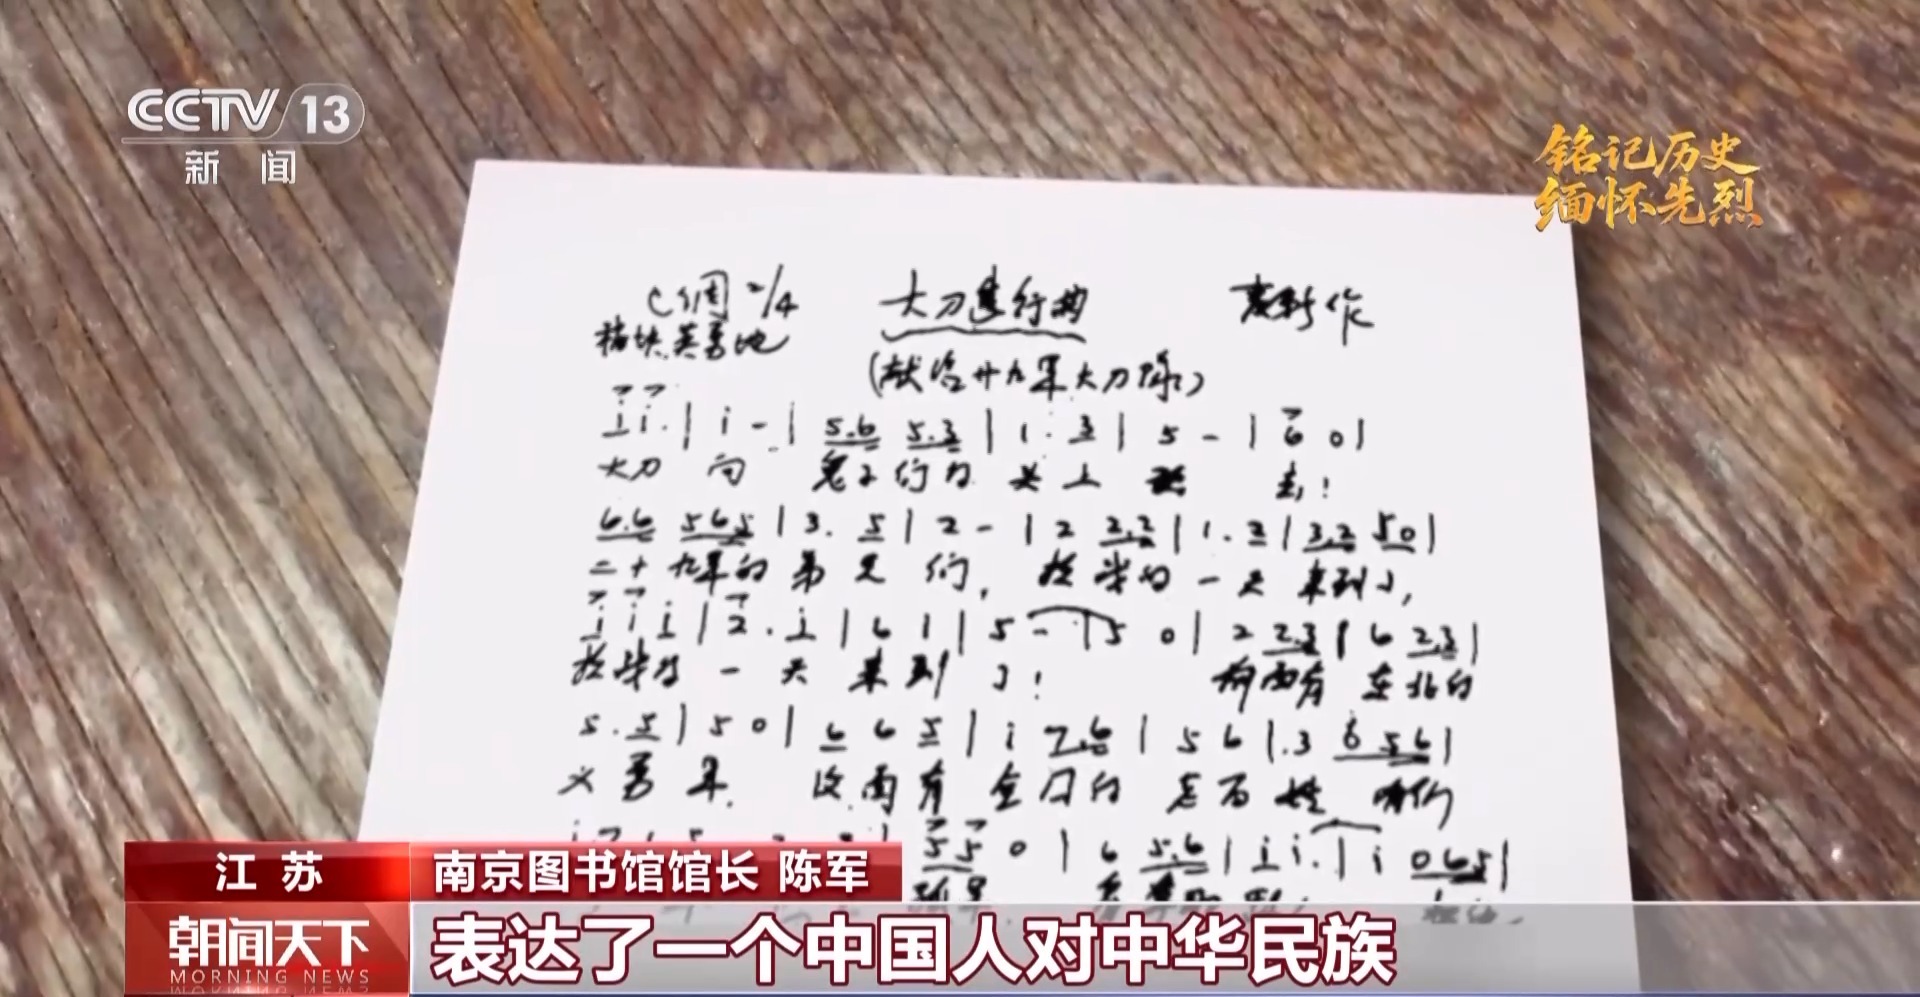 CCTV 13
新闻
铭记历史
缅怀先烈
C调 2/4 大刀进行曲 麦新作
(献给廿九军大刀队)
i i. | i - | 5.6 5.3 | 1. 3 | 5 - | 6 0 |
大刀 向 鬼子们的 头上 砍 去!
6.6 565 | 3. 5 | 2 - | 2 2.2 | 1. 2 | 3.2 50 |
二十九军的弟兄们, 抗战的一天来到了,
i i i | 2. i | 6 1 | 5 - | 5 0 | 2 2.3 | 6 2.3 |
抗战的一天来到了! 前面有东北的
5. 5 | 5 0 | 6 6 5 | i 7.6 | 5 6 | .3 6 56 |
义勇军, 后面有全国的老百姓 咱们
5 5 0 | 6 5.6 | i i. | i 065 |
江苏 南京图书馆馆长 陈军
朝闻天下 表达了一个中国人对中华民族
MORNING NEWS